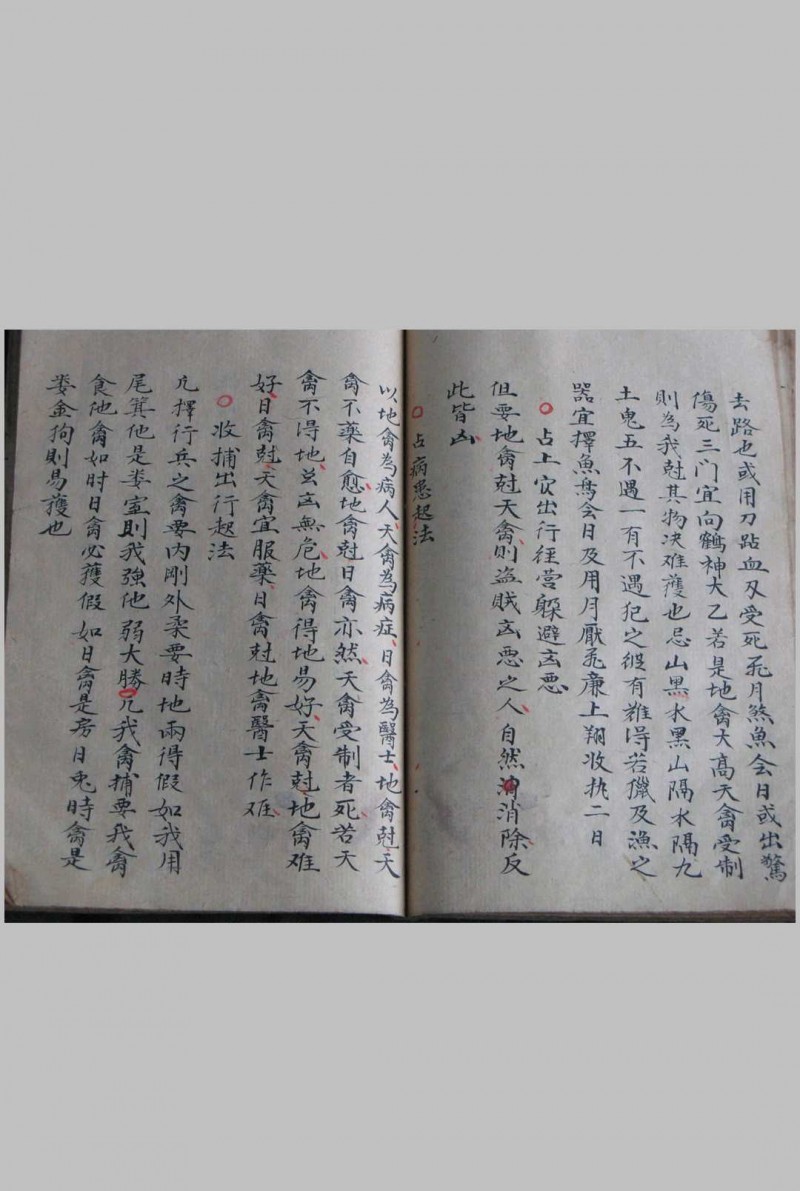 去路也或用刀跕血及受死飛月煞魚会日或出驚
傷死三门宜向鶴神大乙若是地禽大高天禽受制
則為我尅其物决难獲也忌山黑水黑山隔水隔九
土鬼五不遇一有不遇犯之後有难得若獵及漁之
器宜擇魚鳥会日及用月厭飛廉上翔收执二日
○占上官出行徃营躲避凶恶
但要地禽尅天禽則盗賊凶恶之人自然消除反
此皆凶
○占病患起法
以地禽為病人天禽為病症日禽為醫士地禽尅天
禽不藥自愈地禽尅日禽亦然天禽受制者死若天
禽不得地並凶無危地禽得地易好天禽尅地禽难
好日禽尅天禽宜服藥日禽尅地禽醫士作难
○收捕出行起法
凢擇行兵之禽要内剛外柔要時地兩得假如我用
尾箕他是娄室則我強他弱大勝凢我禽捕要我禽
食他禽如时日禽必獲假如日禽是房日兎時禽是
娄金狗則易獲也